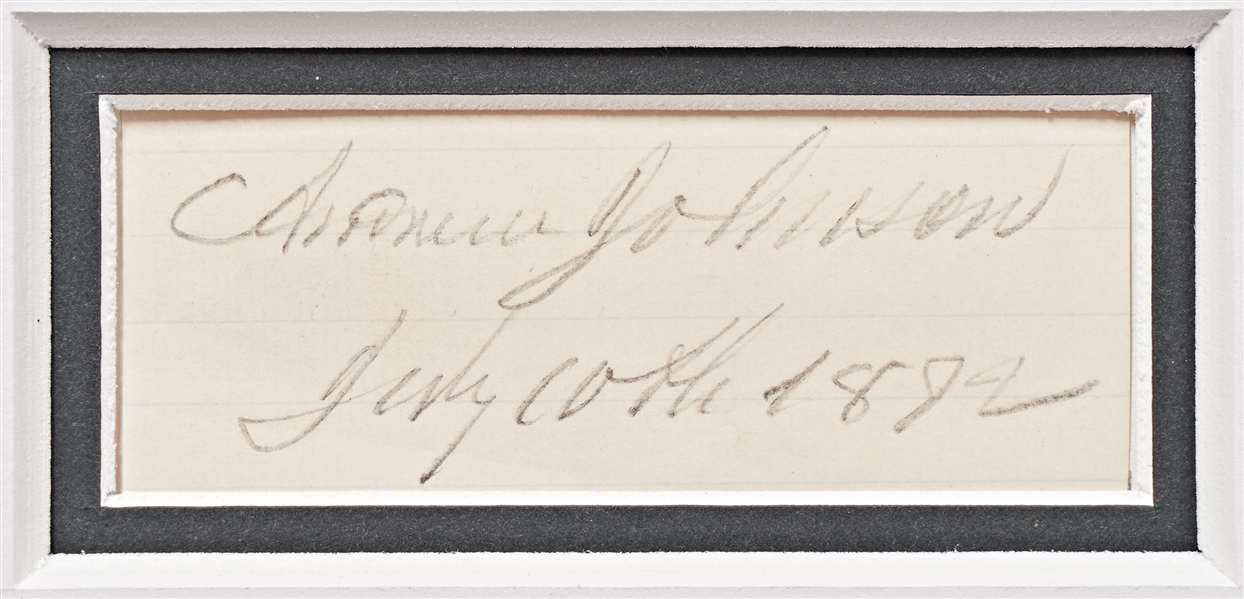 Andrew Johnson
July 10th 1872